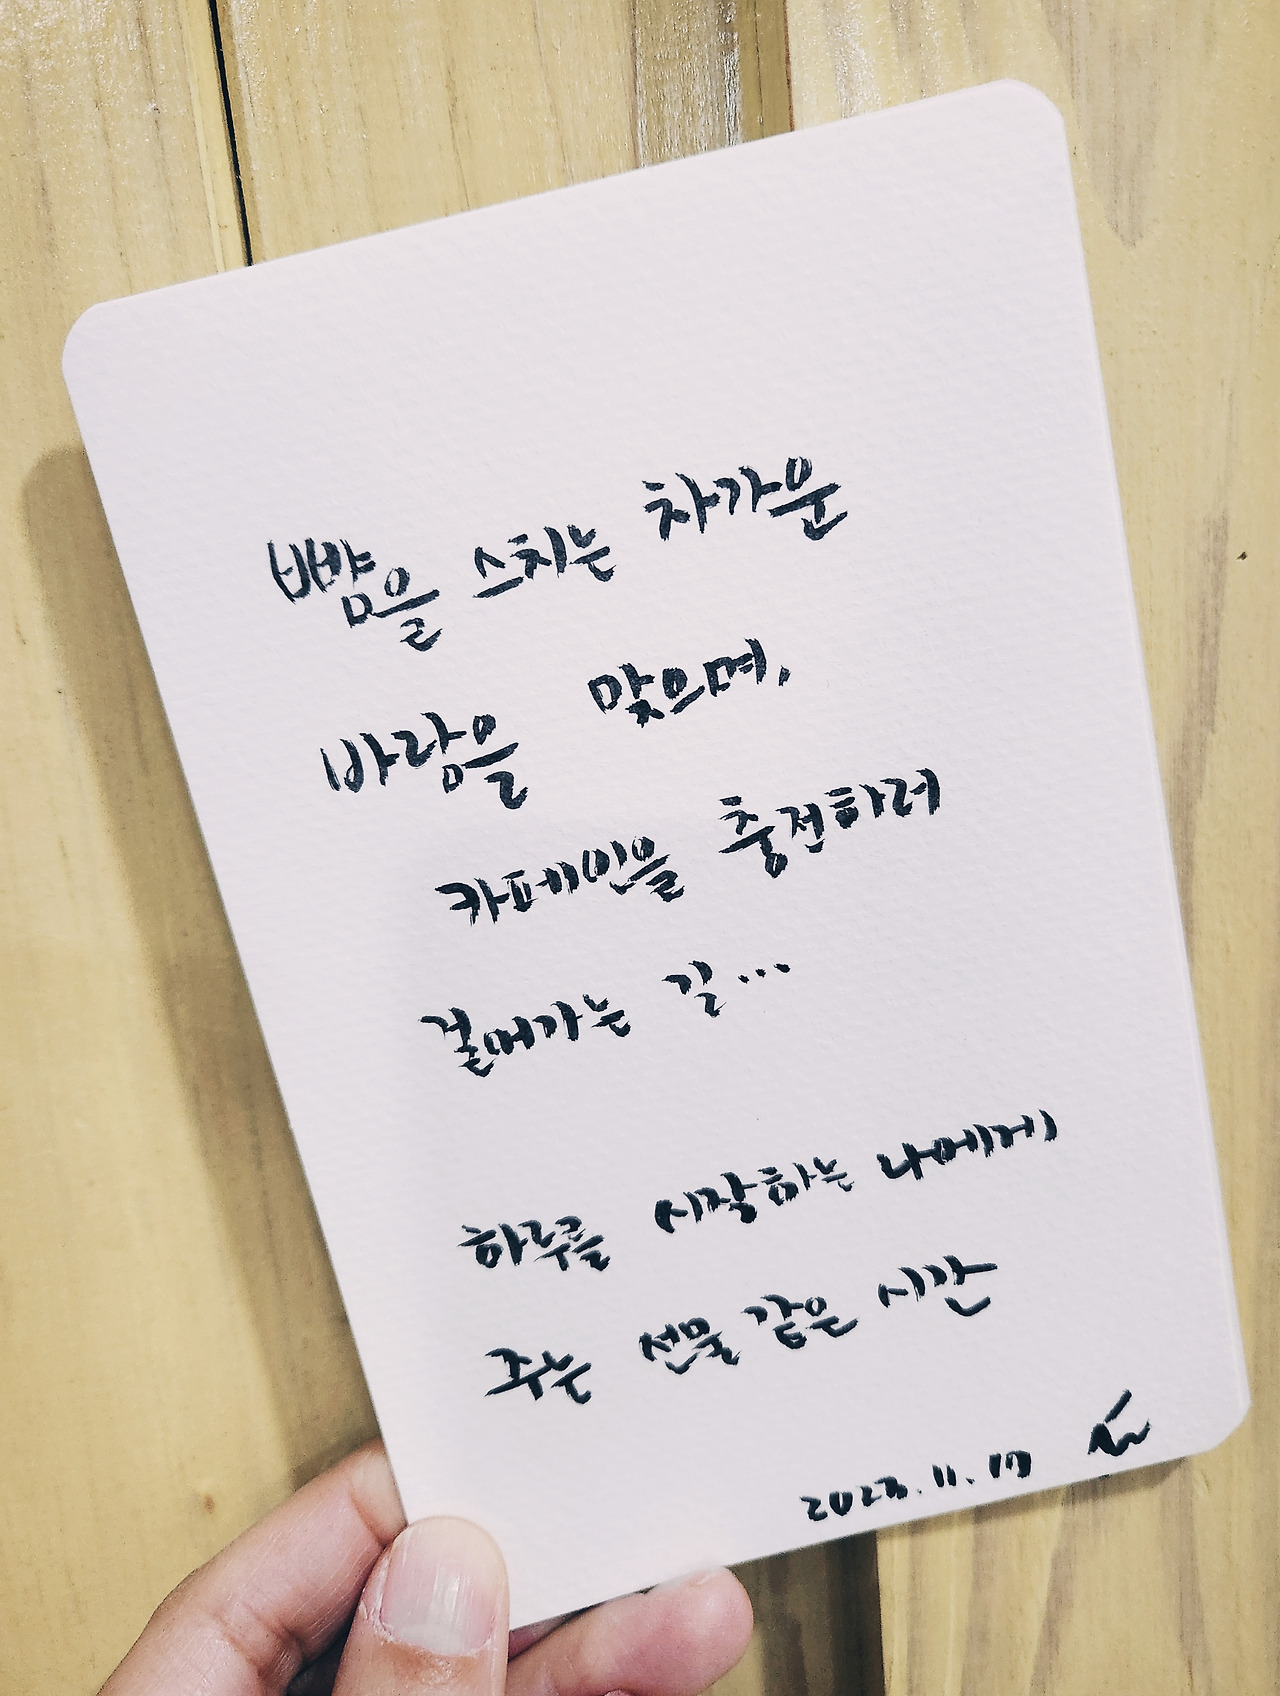 뺨을 스치는 차가운
바람을 맞으며,
카페인을 충전하러
걸어가는 길...
하루를 시작하는 나에게
주는 선물 같은 시간
2023. 11. 17